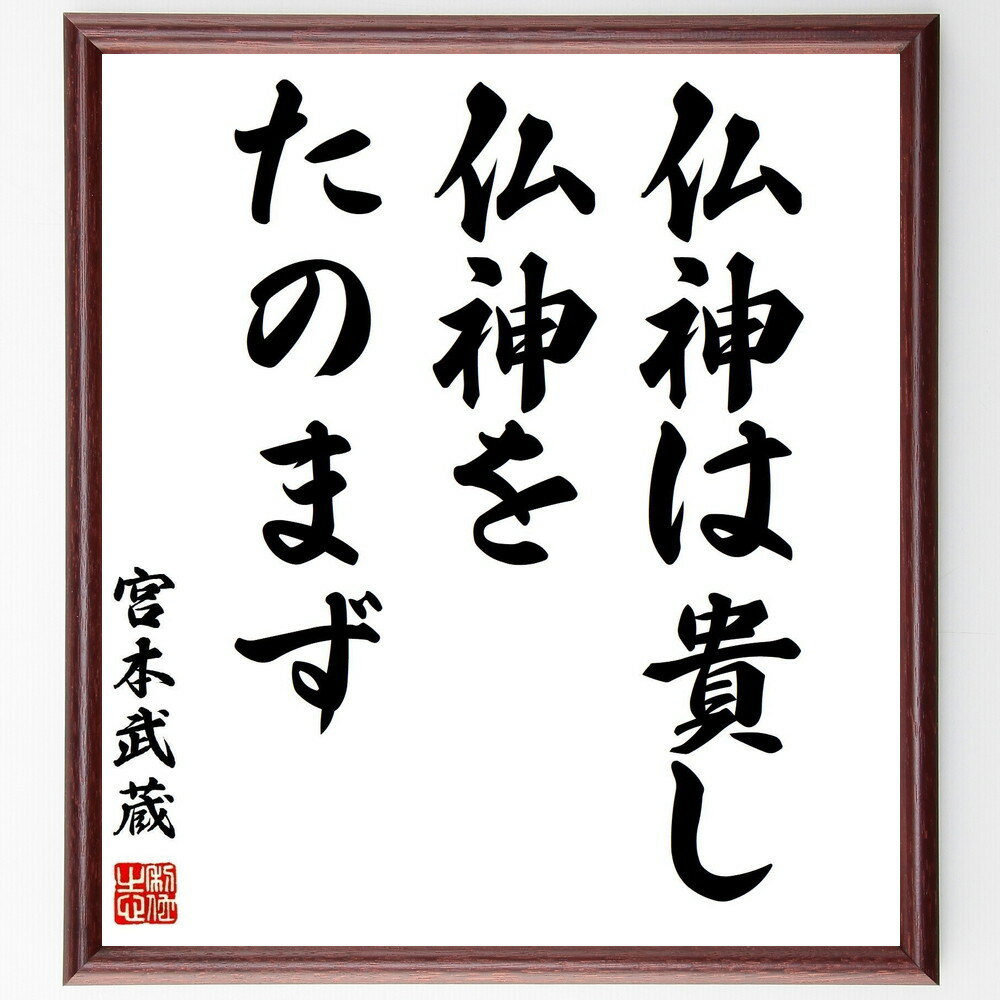 仏神は貴し
仏神を
たのまず
宮本武蔵